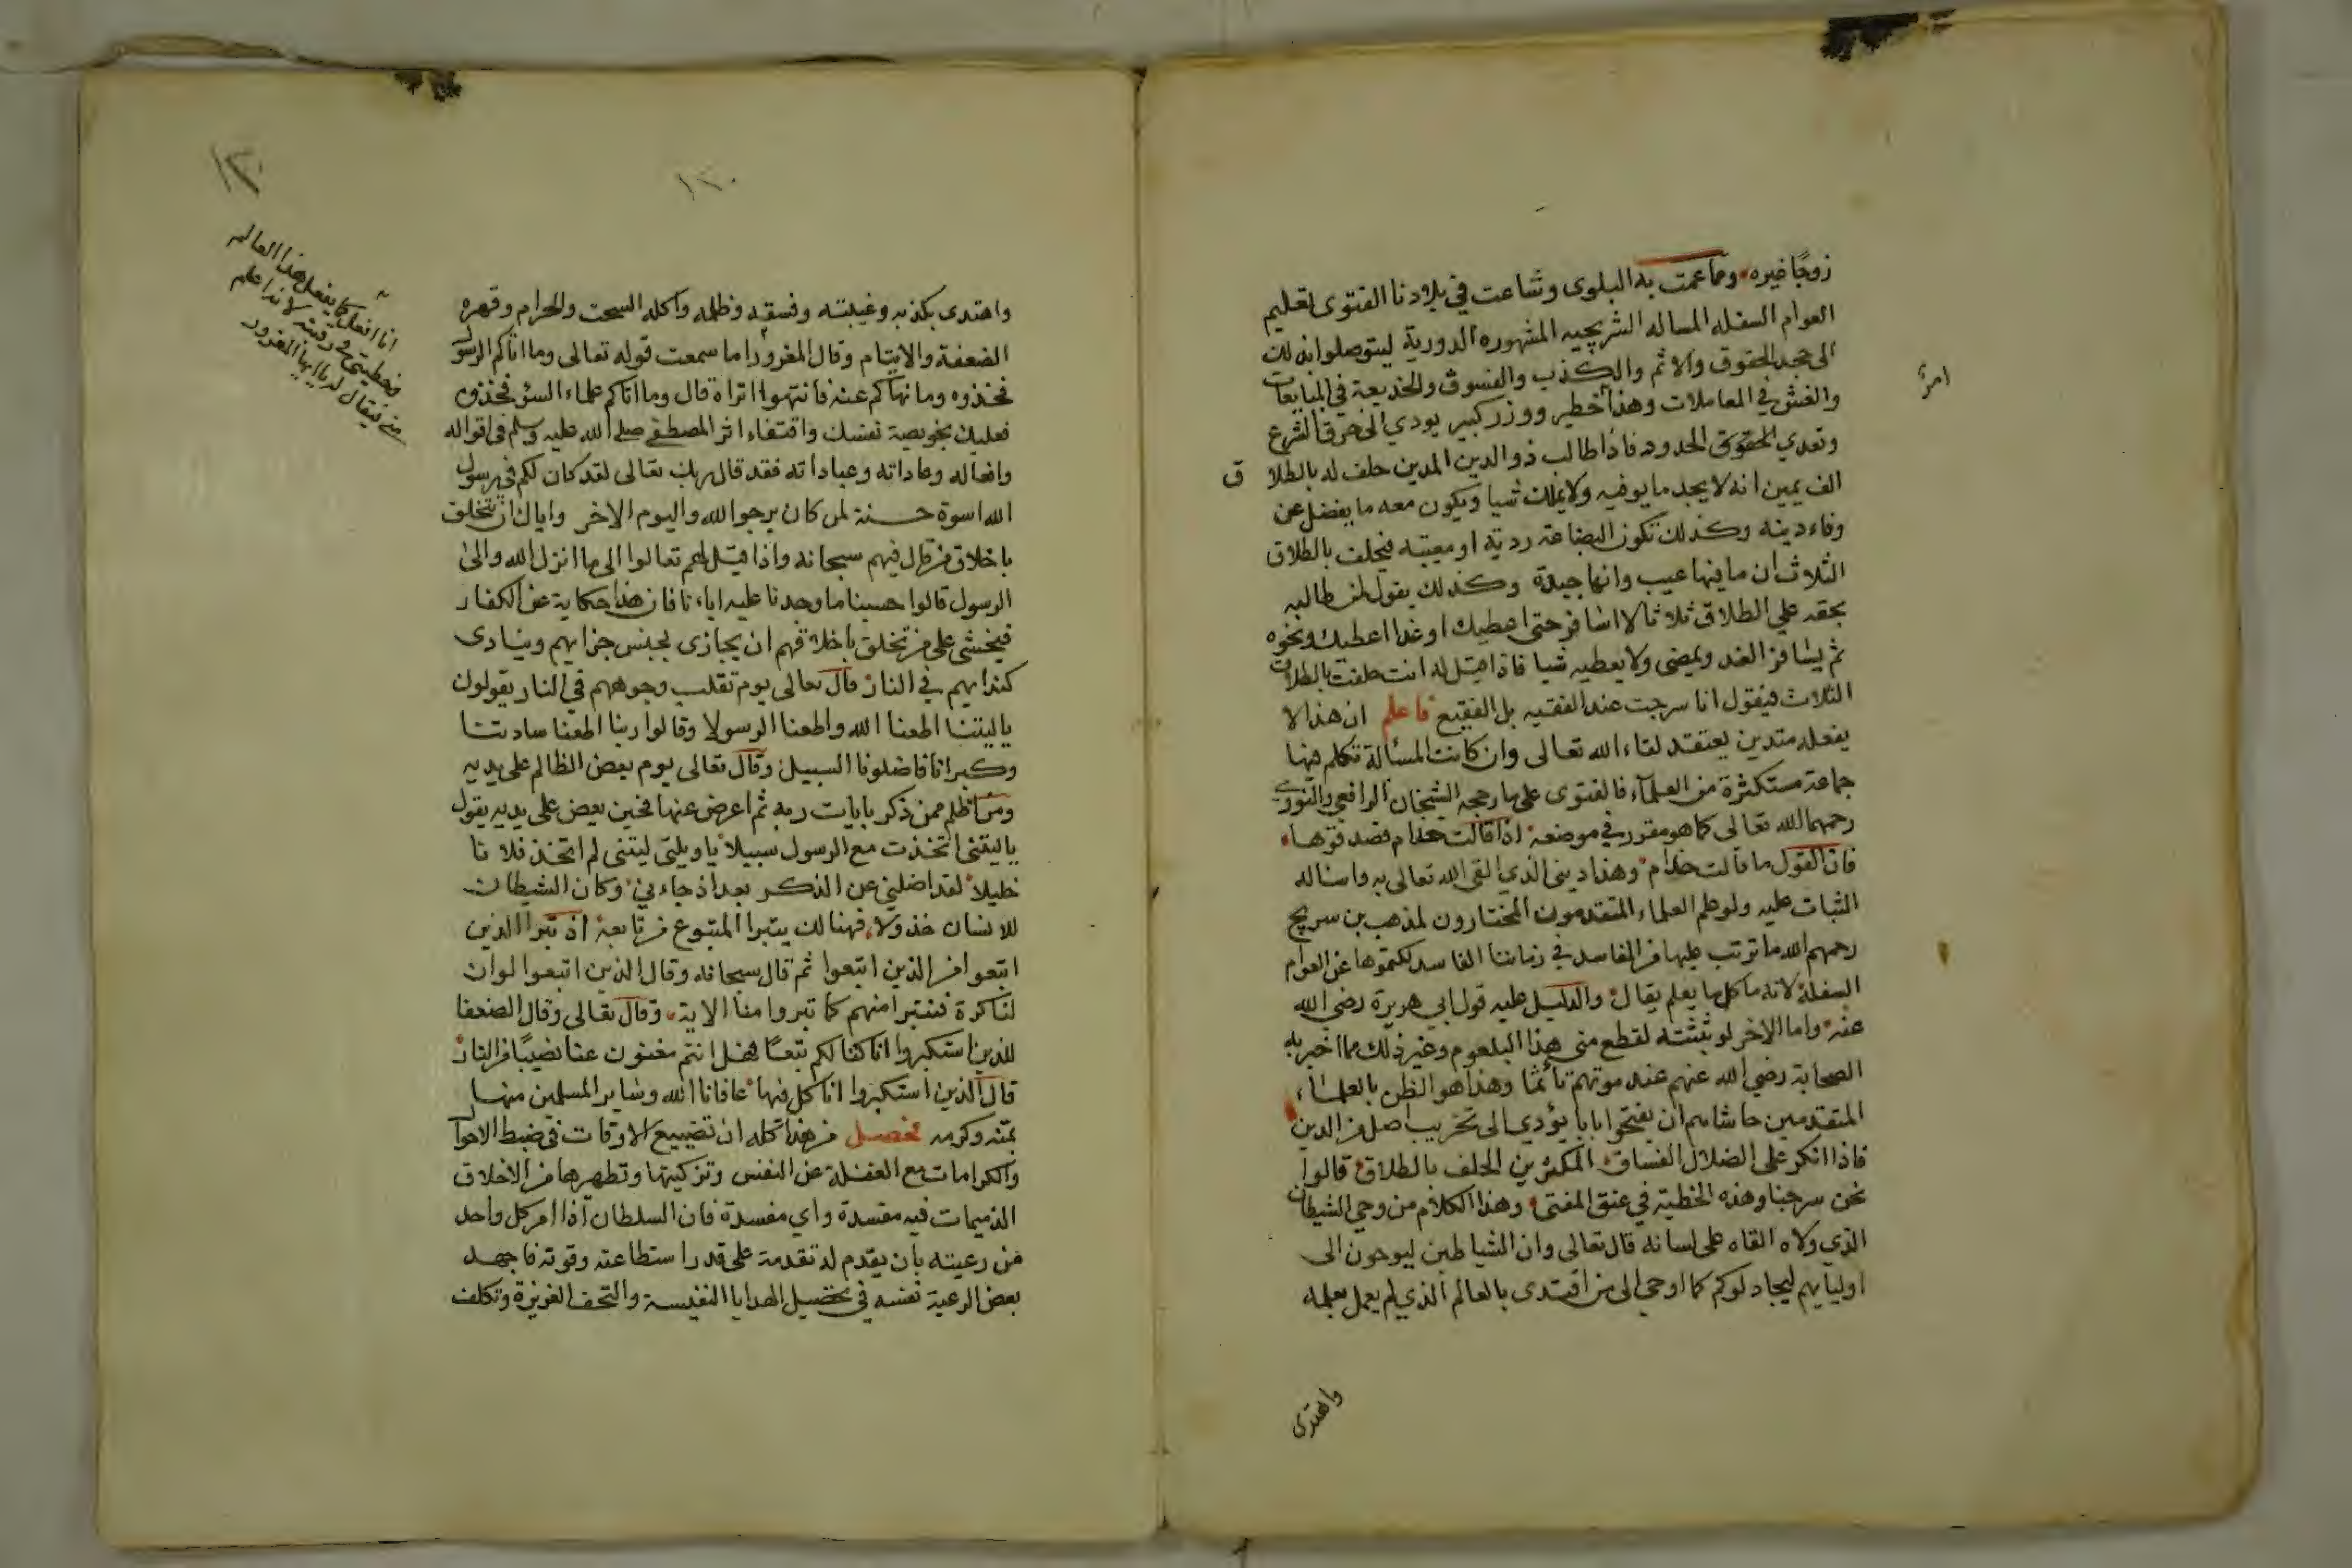 زوجًا غيره وما عمت به البلوى وشاعت في بلادنا الفتوى لتعليم
العوام السفله المساله الشريجيه المشهوره الدورية ليتوصلوا بذلك
الى جحد الحقوق والاثم والكذب والفسوق والخديعة في المبايعات
والغش في المعاملات وهذا خطير ووزر كبير يودي الى خرق الشرع
امرٌ
وتعدي الحقوق الحدود فاذا طالب ذو الدين المدين حلف له بالطلاق
الف يمين انه لا يجد ما يوفيه ولا يملك شيا ويكون معه ما يفضل عن
وفاء دينه وكذلك تكون البضاعة ردية او معيبة فيحلف بالطلاق
الثلاث ان ما فيها عيب وانها جيدة وكذلك يقول لمن طالبه
بحقه علي الطلاق ثلاثا لا اسافر حتى اعطيك او غدا اعطيك ونحوه
ثم يسافر الغد ويمضى ولا يعطيه شيا فاذا قيل له انت حلفت بالطلاق
الثلاث فيقول انا سرجت عند الفقيه بل الفقيع فاعلم ان هذا لا
يفعله متدين يعتقد لقاء الله تعالى وان كانت المسألة تكلم فيها
جماعة مستكثرة من العلماء فالفتوى على ما رجحه الشيخان الرافعي والنووي
رحمهما الله تعالى كما هو مقرر في موضعه اذا قالت حذام فصدقوها
فان القول ما قالت حذام وهذا ديني الذي القى الله تعالى به واساله
الثبات عليه ولو علم العلماء المتقدمون المختارون لمذهب بن سريج
رحمهم الله ما ترتب عليها من المفاسد في زماننا الفاسد لكتموها عن العوام
السفلة لانه ما كل ما يعلم يقال والدليل عليه قول ابي هريرة رضي الله
عنه واما الاخر لو بثثته لقطع مني هذا البلعوم وغير ذلك مما اخبر به
الصحابة رضي الله عنهم عند موتهم تأثمًا وهذا هو الظن بالعلماء
المتقدمين حاشاهم ان يفتحوا بابا يؤدي الى تخريب اصل من الدين
فاذا انكر على الضلال الفساق المكثرين الحلف بالطلاق قالوا
نحن سرجنا وهذه الخطية في عنق المفتى وهذا الكلام من وحي الشيطان
الذي ولاه القاه على لسانه قال تعالى وان الشياطين ليوحون الى
اوليآيهم ليجادلوكم كما اوحي الى من اقتدى بالعالم الذي لم يعمل بعلمه
واهتدى
١٣٠
١٣٠
واهتدى بكذبه وغيبته وفسقه وظلمه واكله السحت والحرام وقهره
الضعفة والايتام وقال المغرور اما سمعت قوله تعالى وما اتاكم الرسول
فخذوه وما نهاكم عنه فانتهوا اتراه قال وما اتاكم علماء السؤ فخذوه
فعليك بخويصة نفسك واقتفاء اثر المصطفى صلى الله عليه وسلم في اقواله
وافعاله وعاداته وعباداته فقد قال ربك تعالى لقد كان لكم في رسول
الله اسوة حسنة لمن كان يرجوا الله واليوم الاخر واياك ان تتخلق
باخلاق من قال فيهم سبحانه واذا قيل لهم تعالوا الى ما انزل الله والى
الرسول قالوا حسبنا ما وجدنا عليه اباءنا فان هذا حكاية عن الكفار
فيخشى على من تخلق باخلاقهم ان يجازى بجنس جزايهم وينادى
كندايهم في النار قال تعالى يوم تقلب وجوههم في النار يقولون
ياليتنا اطعنا الله واطعنا الرسولا وقالوا ربنا اطعنا سادتنا
وكبرانا فاضلونا السبيل وقال تعالى يوم يعض الظالم على يديه
ومن اظلم ممن ذكر بايات ربه ثم اعرض عنها فحين يعض على يديه يقول
ياليتني اتخذت مع الرسول سبيلا ياويلتى ليتني لم اتخذ فلانا
خليلا لقد اضلني عن الذكر بعد اذ جاءني وكان الشيطان
للانسان خذولا فهنالك يتبرا المتبوع من تابعه اذ تبرا الذين
اتبعوا من الذين اتبعوا ثم قال سبحانه وقال الذين اتبعوا لو ان
لنا كرة فنتبرا منهم كما تبروا منا الاية وقال تعالى وقال الضعفا
للذين استكبروا انا كنا لكم تبعًا فهل انتم مغنون عنا نصيبًا من النار
قال الذين استكبروا انا كل فيها عافانا الله وساير المسلمين منها
بمنه وكرمه فحصل من هذا كله ان تضييع الاوقات في ضبط الاحوال
والكرامات مع الغفلة عن النفس وتزكيتها وتطهيرها من الاخلاق
الذميمات فيه مفسدة واي مفسدة فان السلطان اذا امر كل واحد
من رعيته بان يقدم له تقدمة على قدر استطاعته وقوته فاجهد
بعض الرعية نفسه في تحصيل الهدايا النفيسة والتحف العزيزة وتكلف
انا افعل كما يفعل هذا العالم
وخطيتي في رقبته لانه اعلم
مني فيقال له يا ايها المغرور